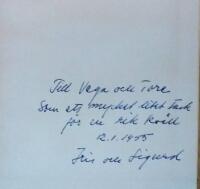 Till Vega och Tore
Som ett mycket litet tack
för en rik kväll
12.1.1955
Iris och Sigurd